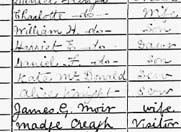 Charlotte -do- Wife
William H. -do- Son
Harriet E. -do- Daur
Daniel F. -do- Son
Kate McDonald Serv
Alice Knight Serv
James G. Moir wife
Madge Creagh Visitor